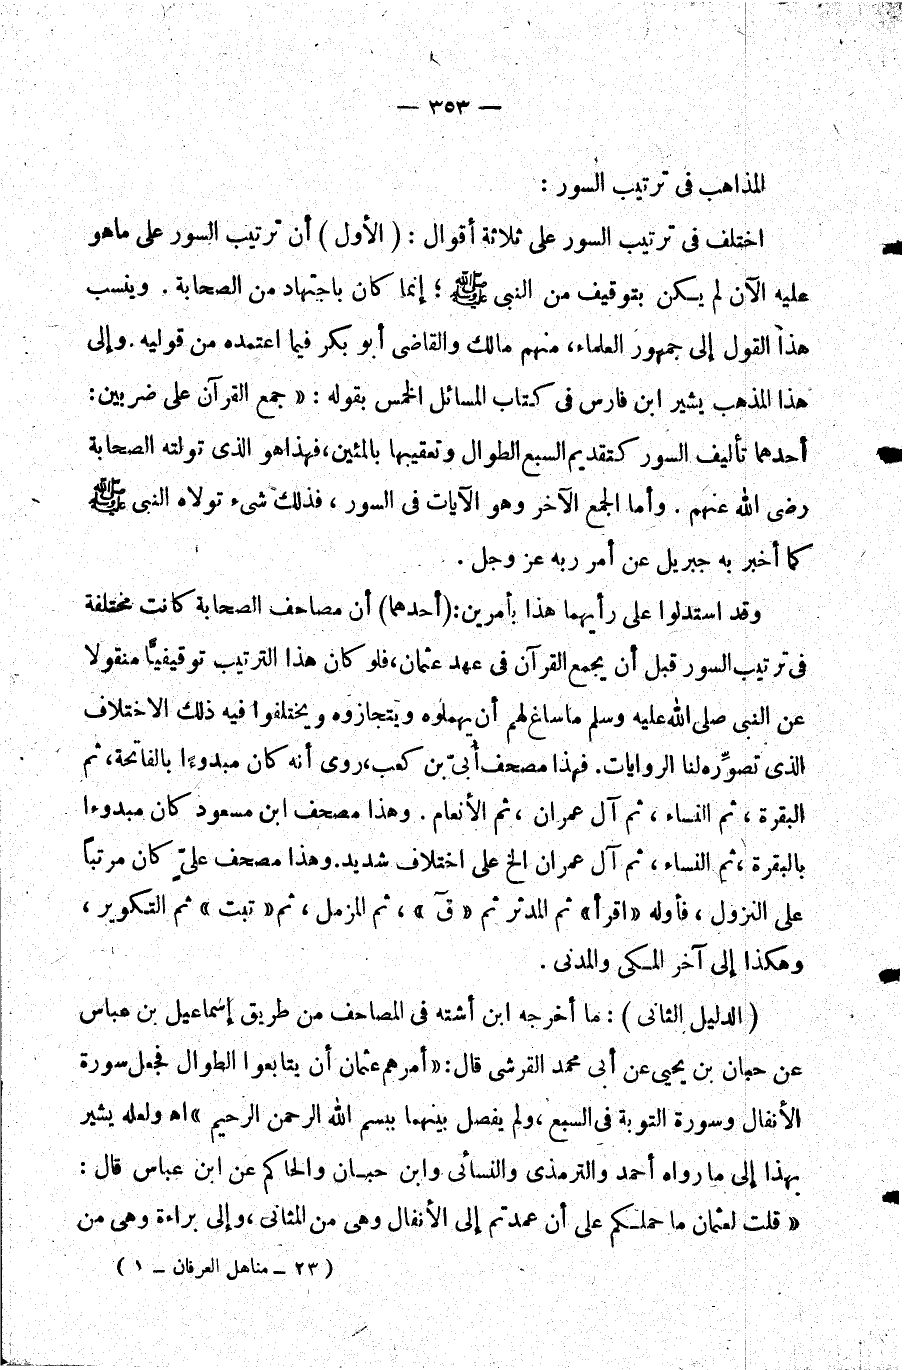 — ٣٥٣ —
المذاهب فى ترتيب السور :
اختلف فى ترتيب السور على ثلاثة أقوال : ( الأول ) أن ترتيب السور على ماهو
عليه الآن لم يكن بتوقيف من النبى ﷺ ؛ إنما كان باجتهاد من الصحابة . وينسب
هذا القول إلى جمهور العلماء، منهم مالك والقاضى أبو بكر فيما اعتمده من قوليه . وإلى
هذا المذهب يشير ابن فارس فى كتاب المسائل الخمس بقوله : « جمع القرآن على ضربين :
أحدهما تأليف السور كتقديم السبع الطوال وتعقيبها بالمئين، فهذا هو الذى تولته الصحابة
رضى الله عنهم . وأما الجمع الآخر وهو الآيات فى السور ، فذلك شىء تولاه النبى ﷺ
كما أخبر به جبريل عن أمر ربه عز وجل .
وقد استدلوا على رأيهما هذا بأمرين: (أحدهما) أن مصاحف الصحابة كانت مختلفة
فى ترتيب السور قبل أن يجمع القرآن فى عهد عثمان، فلو كان هذا الترتيب توقيفيًّا منقولا
عن النبى صلى الله عليه وسلم ماساغ لهم أن يهملوه ويتجازوه ويختلفوا فيه ذلك الاختلاف
الذى تصوِّره لنا الروايات. فهذا مصحف أُبىّ بن كعب، روى أنه كان مبدوءًا بالفاتحة، ثم
البقرة ، ثم النساء ، ثم آل عمران ، ثم الأنعام . وهذا مصحف ابن مسعود كان مبدوءا
بالبقرة ، ثم النساء ، ثم آل عمران الخ على اختلاف شديد. وهذا مصحف علىّ كان مرتباً
على النزول ، فأوله «اقرأ» ثم المدثر ثم « قٓ » ، ثم المزمل ، ثم « تبت » ثم التكوير ،
وهكذا إلى آخر المكى والمدنى .
( الدليل الثانى ) : ما أخرجه ابن أشته فى المصاحف من طريق إسماعيل بن عباس
عن حبان بن يحيى عن أبى محمد القرشى قال: «أمرهم عثمان أن يتابعوا الطوال فجعل سورة
الأنفال وسورة التوبة فى السبع ، ولم يفصل بينهما ببسم الله الرحمن الرحيم » اه ولعله يشير
بهذا إلى ما رواه أحمد والترمذى والنسائى وابن حبان والحاكم عن ابن عباس قال :
« قلت لعثمان ما حملكم على أن عمدتم إلى الأنفال وهى من المثانى ، وإلى براءة وهى من
( ٢٣ – مناهل العرفان – ١ )